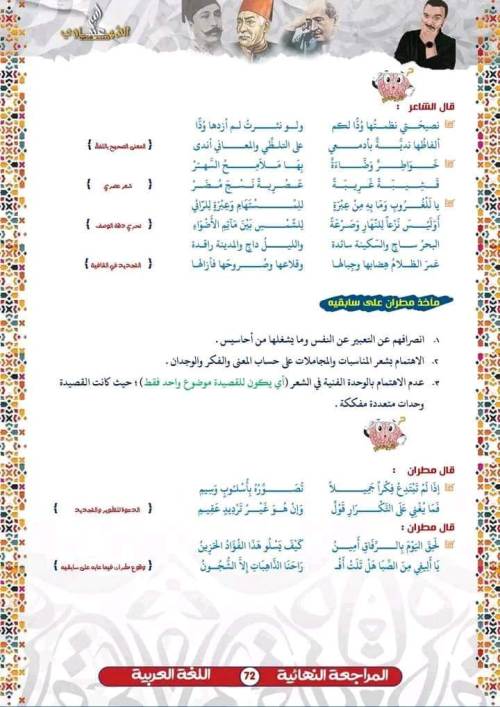 قال الشاعر :
نصيحتي نظمتُها وُدًّا لكم ولو نثرتُ لم أزدها وُدًّا
ألفاظُها نديَّةٌ بأدمعي على التلظِّي والمعاني أندى { المعنى الصحيح باللفظ }
خَوَاطِرٌ وَضَّاءَةٌ بِهَا مَلَامِحُ السَّهَرْ
عَصْرِيَّةٌ نَسْجُ مُضَرْ { شعر عصري }
يا لَلْغُرُوبِ وَمَا بِهِ مِنْ عِبْرَةٍ لِلْمُسْتَهَامِ وَعِبْرَةٍ لِلرَّائِي
أَوَلَيْسَ نَزْعًا لِلنَّهَارِ وَصَرْعَةً لِلشَّمْسِ بَيْنَ مَآتِمِ الأَضْوَاءِ { تحري دقة الوصف }
البحرُ ساجٍ والسكينة سائدة والليلُ داجٍ والمدينة راقدة
غمرَ الظلامُ هضابها وجبالها وقلاعها وصروحها فأزالها { التجديد في القافية }
مآخذ مطران على سابقيه
١. انصرافهم عن التعبير عن النفس وما يشغلها من أحاسيس .
٢. الاهتمام بشعر المناسبات والمجاملات على حساب المعنى والفكر والوجدان .
٣. عدم الاهتمام بالوحدة الفنية في الشعر (أي يكون للقصيدة موضوع واحد فقط) ؛ حيث كانت القصيدة
وحدات متعددة مفككة .
قال مطران :
إِذَا لَمْ تَبْتَدِعْ فِكْراً جَمِيلاً تُصَوِّرُهُ بِأُسْلُوبٍ وَسِيمِ
فَمَا يُغْنِي عَلَى التَّكْرَارِ قَوْلٌ وَإِنْ هُوَ غَيْرُ تَرْدِيدٍ عَقِيمِ { الدعوة للتطوير والتجديد }
قال مطران :
لَحِقَ اليَوْمَ بِالرِّفَاقِ أَمِينْ كَيْفَ يَسْلُو هَذَا الفُؤَادُ الحَزِينْ
يَا أَلِيفِي مِنَ الصِّبَا هَلْ تَلَتْ أُفْـ رَاحَنَا الذَّاهِبَاتِ إِلاَّ الشُّجُونْ { وقوع مطران فيما عابه على سابقيه }
المراجعة النهائية 72 اللغة العربية